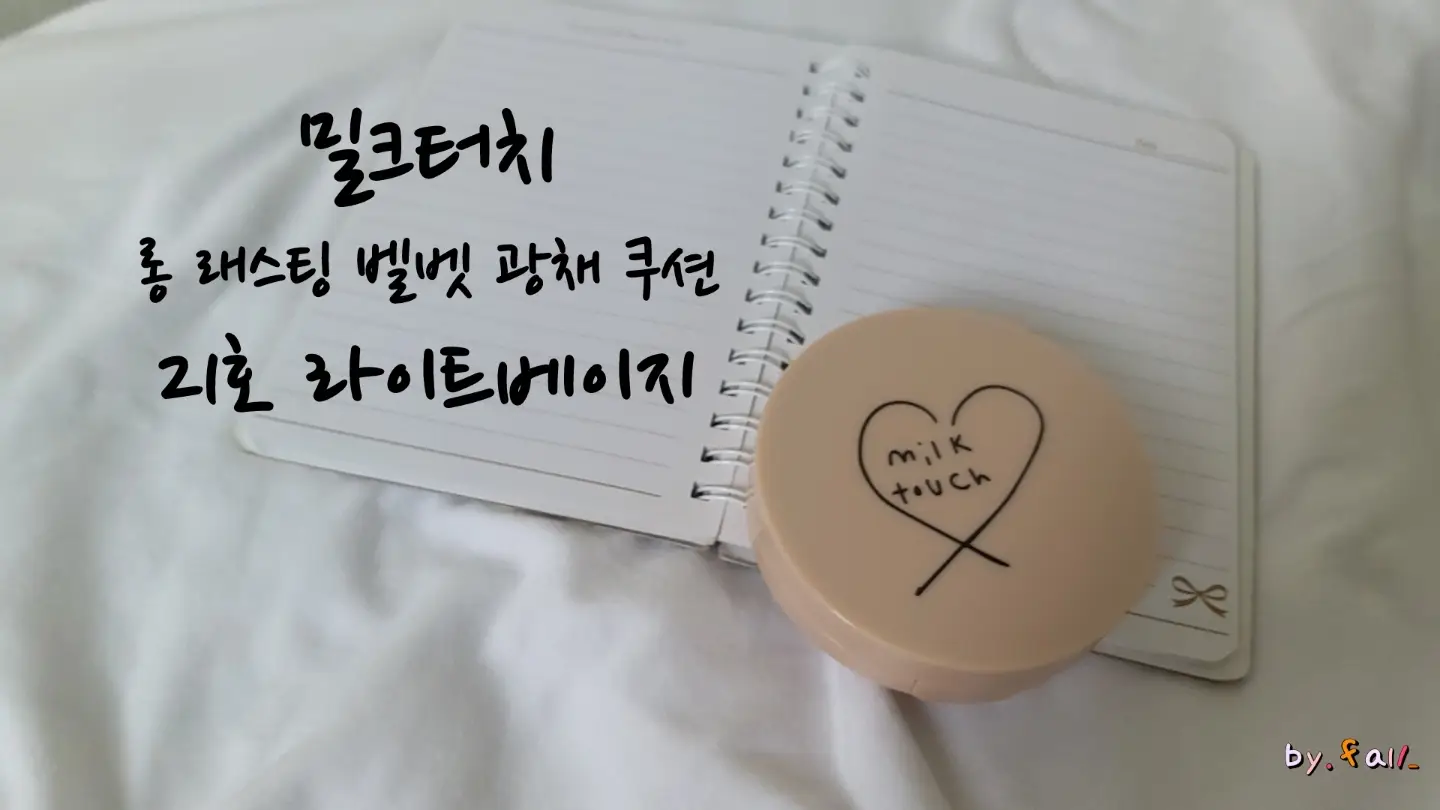 밀크터치
롱 래스팅 벨벳 광채 쿠션
21호 라이트베이지
milk
touch
by.fall_